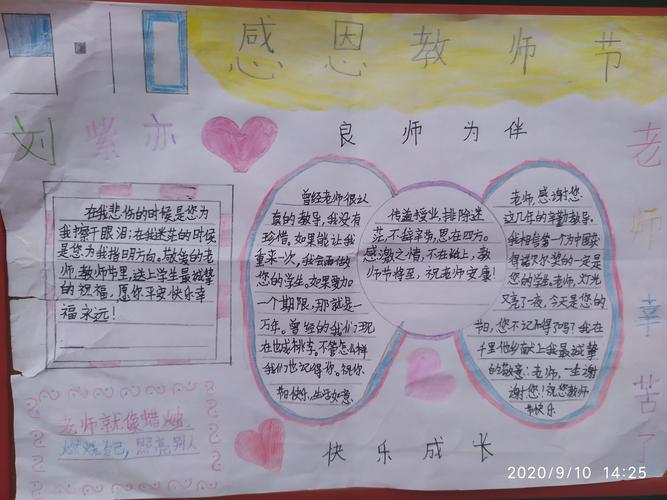 感恩教师节
刘紫亦
良师为伴
老师幸苦了
在我悲伤的时候是您为
我擦干眼泪；在我迷茫的时候
是您为我指明方向。敬爱的老
师，教师节里，送上学生最诚挚
的祝福，愿你平安快乐幸
福永远！
曾经老师很认
真的教导，我没有
珍惜，如果能让我
重来一次，我会再做
您的学生。如果要加
一个期限，那就是一
万年。曾经的我们现
在也成桃李。不管怎么样
我们也记得你。祝你
节日快乐，生活如意。
传道授业，排除迷
茫，不辞辛劳，恩在四方。
感激之情，不在纸上，教
师节将至，祝老师安康！
老师，感谢您
这几年的辛勤教导。
我相信第一个为中国获
得诺尔奖的一定是
您的学生。老师，灯光
又亮了一夜，今天是您的
节日，您不记得了吗？我在
千里他乡献上我最诚挚
的敬意：老师，一生谢
谢您！祝您教师
节快乐
老师就像蜡烛，
燃烧自己，照亮别人
快乐成长
2020/9/10 14:25